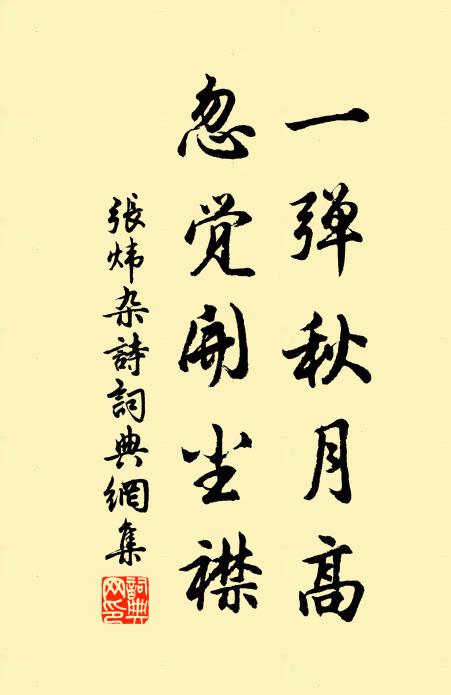 一弹秋月高
忽觉开尘襟
張炜杂詩詞典網集
詞典網印